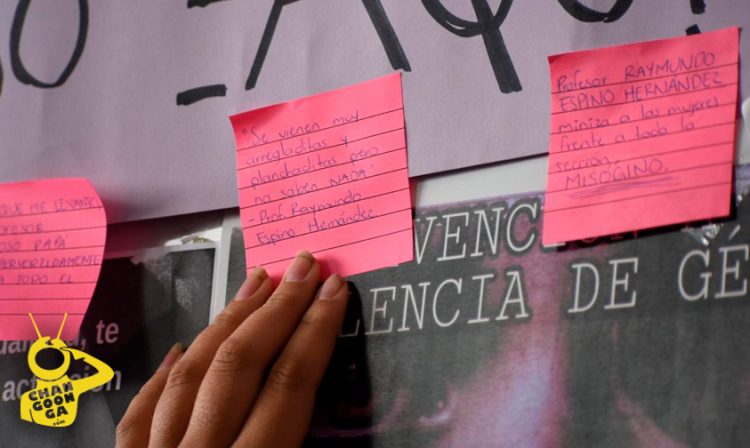 AQU
"Se vienen muy
arregladitas y
planchaditas pero
no saben NADA"
- Prof. Raymundo
Espino Hernández
Profesor RAYMUNDO
ESPINO HERNÁNDEZ
miniza a las mujeres
frente a toda la
sección.
MISÓGINO.
QUE ME LEVANTO
OSO PAPÁ
A TODO EL
VENC
LENCIA DE GÉ
te
CHAN
GOON
GA
.com